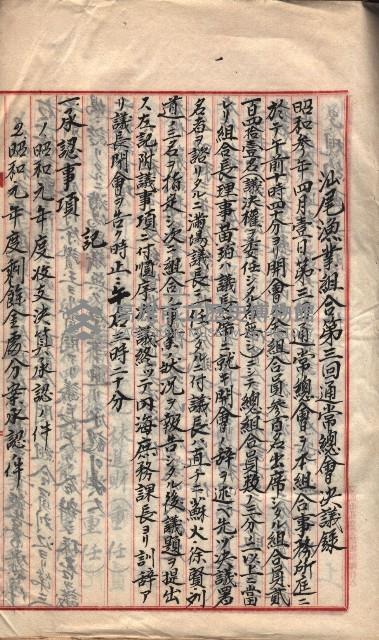 汕尾漁業組合第三回通常總會決議錄
昭和參年四月壹日第三回通常總會ヲ本組合事務所ニ
於テ午前十時四十分ヨリ開會ス全組合員參百名出席シタル組合員貳
百四拾壹名議決權ヲ委任シタル
ニシテ總組合員數三分ノ二以上ニ當
レリ組合長理事黃珀ハ議長席ニ就キ開會ノ辭ヲ述ベ先ツ決議署
名者ヲ諮リタルニ滿場議長ニ一任タルニ付議長ハ直チニ蘇火徐賢列
道ノ三名ヲ指定シ次ニ組合ノ事業狀況ヲ報告シタル後議題ヲ提出
ス左記附議事項ニ付順序決議終ツテ內海庶務課長ヨリ訓辭ア
リ議長閉會ヲ告ク時正ニ午后三時二十分
記
一、承認事項
1 昭和元年度收支決算承認ノ件
2 昭和元年度剩餘金處分案承認ノ件